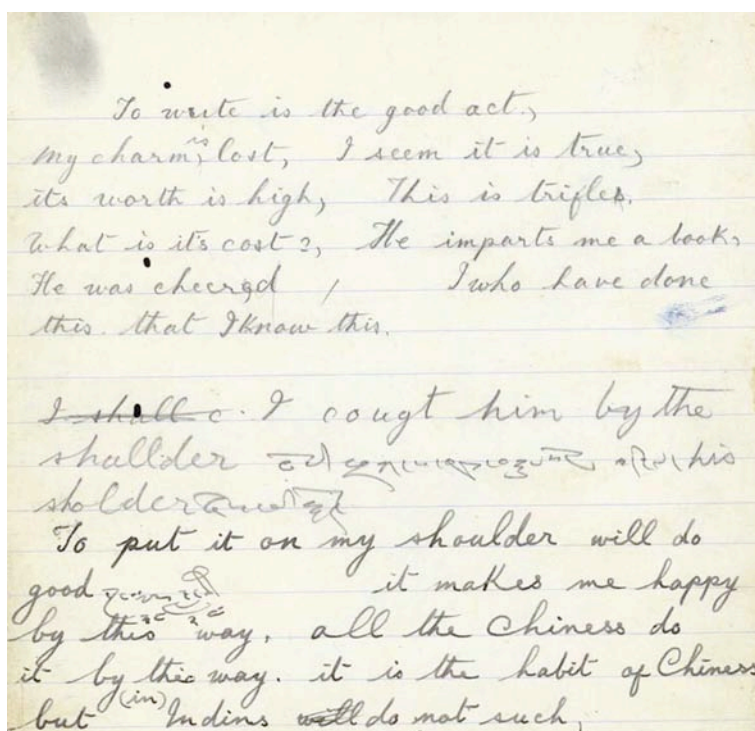 To write is the good act,
My charm is lost, I seem it is true,
its worth is high, This is trifles.
What is it's cost?, He imparts me a book,
He was cheered, I who have done
this. that I know this.
I shall c. I cougt him by the
shallder his
sholder
To put it on my shoulder will do
good it makes me happy
by this way. all the Chiness do
it by the way. it is the habit of Chiness
but (in) Indins will do not such,